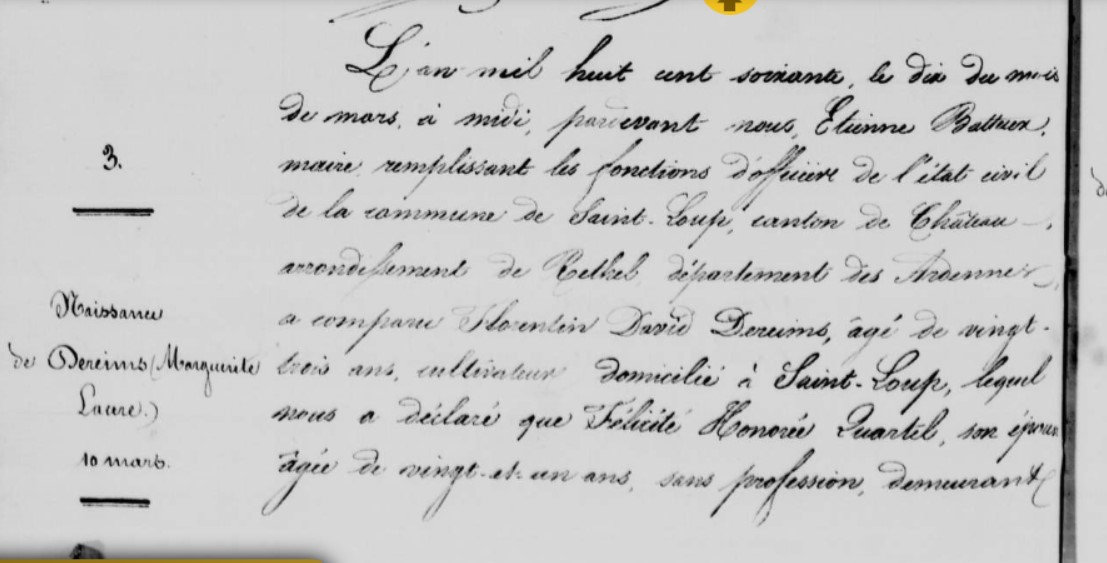 3.
Naissance
de Dereims (Marguerite
Laure.)
10 mars.
L'an mil huit cent soixante, le dix du mois
de mars, à midi, pardevant nous, Etienne
maire remplissant les fonctions d'officier de l'état civil
de la commune de Saint-Loup, canton de Château-,
arrondissement de Rethel, département des Ardennes,
a comparu Florentin David Dereims, âgé de vingt-
trois ans, cultivateur domicilié à Saint-Loup, lequel
nous a déclaré que Félicité Honorée Quartel, son épouse
âgée de vingt-et-un ans, sans profession, demeurant